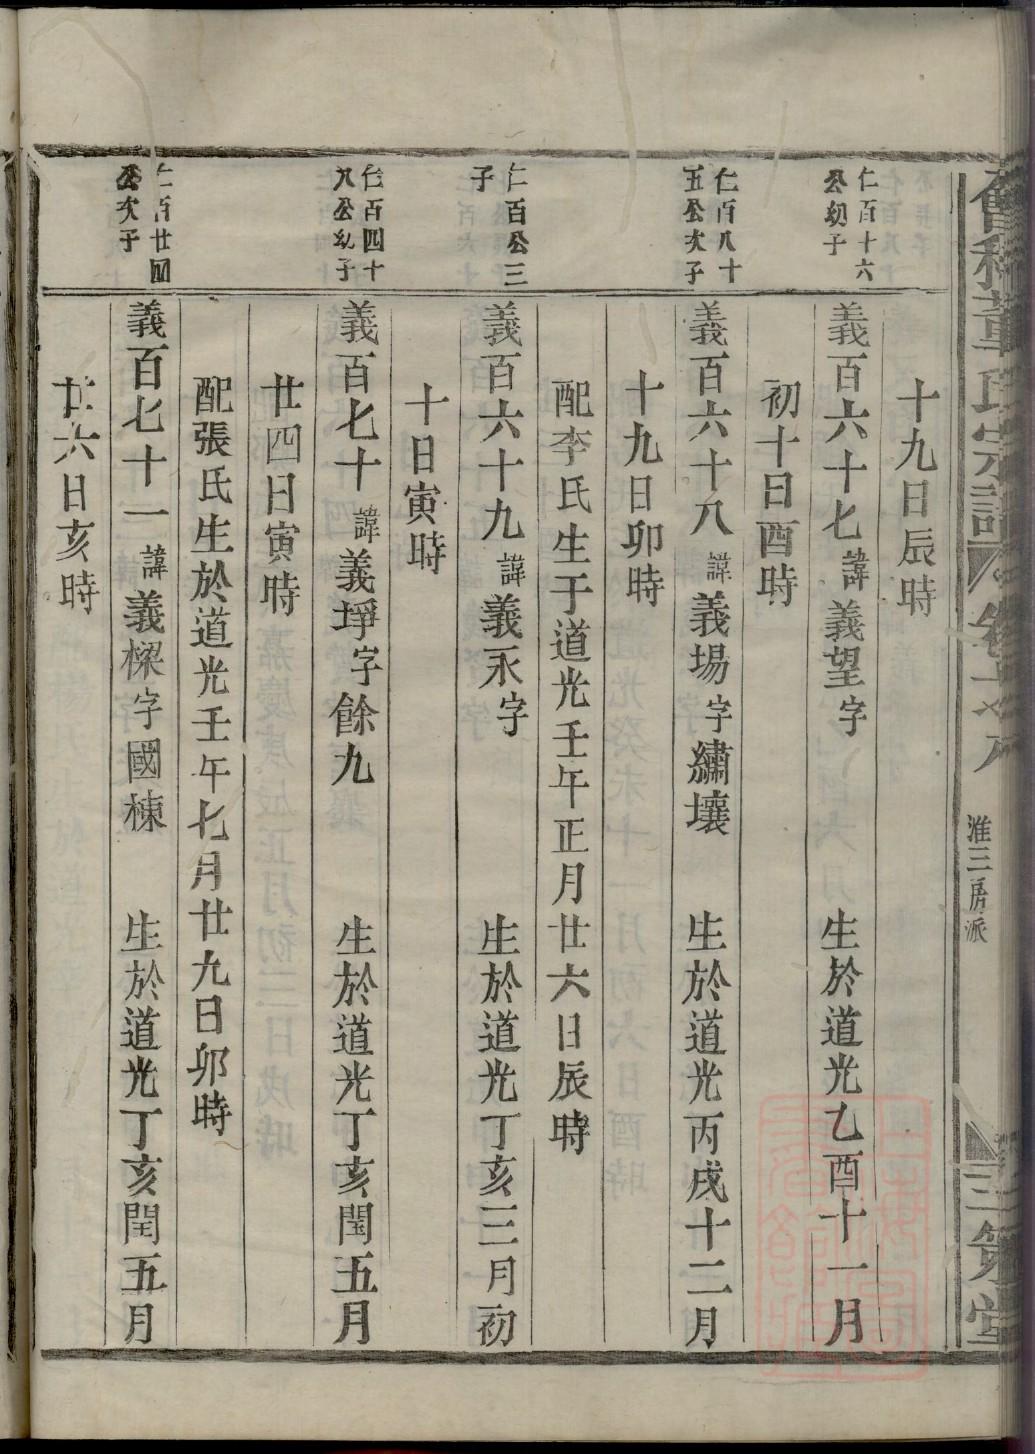 會稽董氏宗譜
淮三房派
三策堂
十九日辰時
仁百十六
公幼子
義百六十七諱義望字
生於道光乙酉十一月
初十日酉時
仁百八十
五公次子
義百六十八諱義場字繡壤
生於道光丙戌十二月
十九日卯時
配李氏生于道光壬午正月廿六日辰時
仁百公三
子
義百六十九諱義永字
生於道光丁亥三月初
十日寅時
仁百四十
八公幼子
義百七十諱義埩字餘九
生於道光丁亥閏五月
廿四日寅時
配張氏生於道光壬午七月廿九日卯時
仁百廿四
公次子
義百七十一諱義樑字國棟
生於道光丁亥閏五月
廿六日亥時